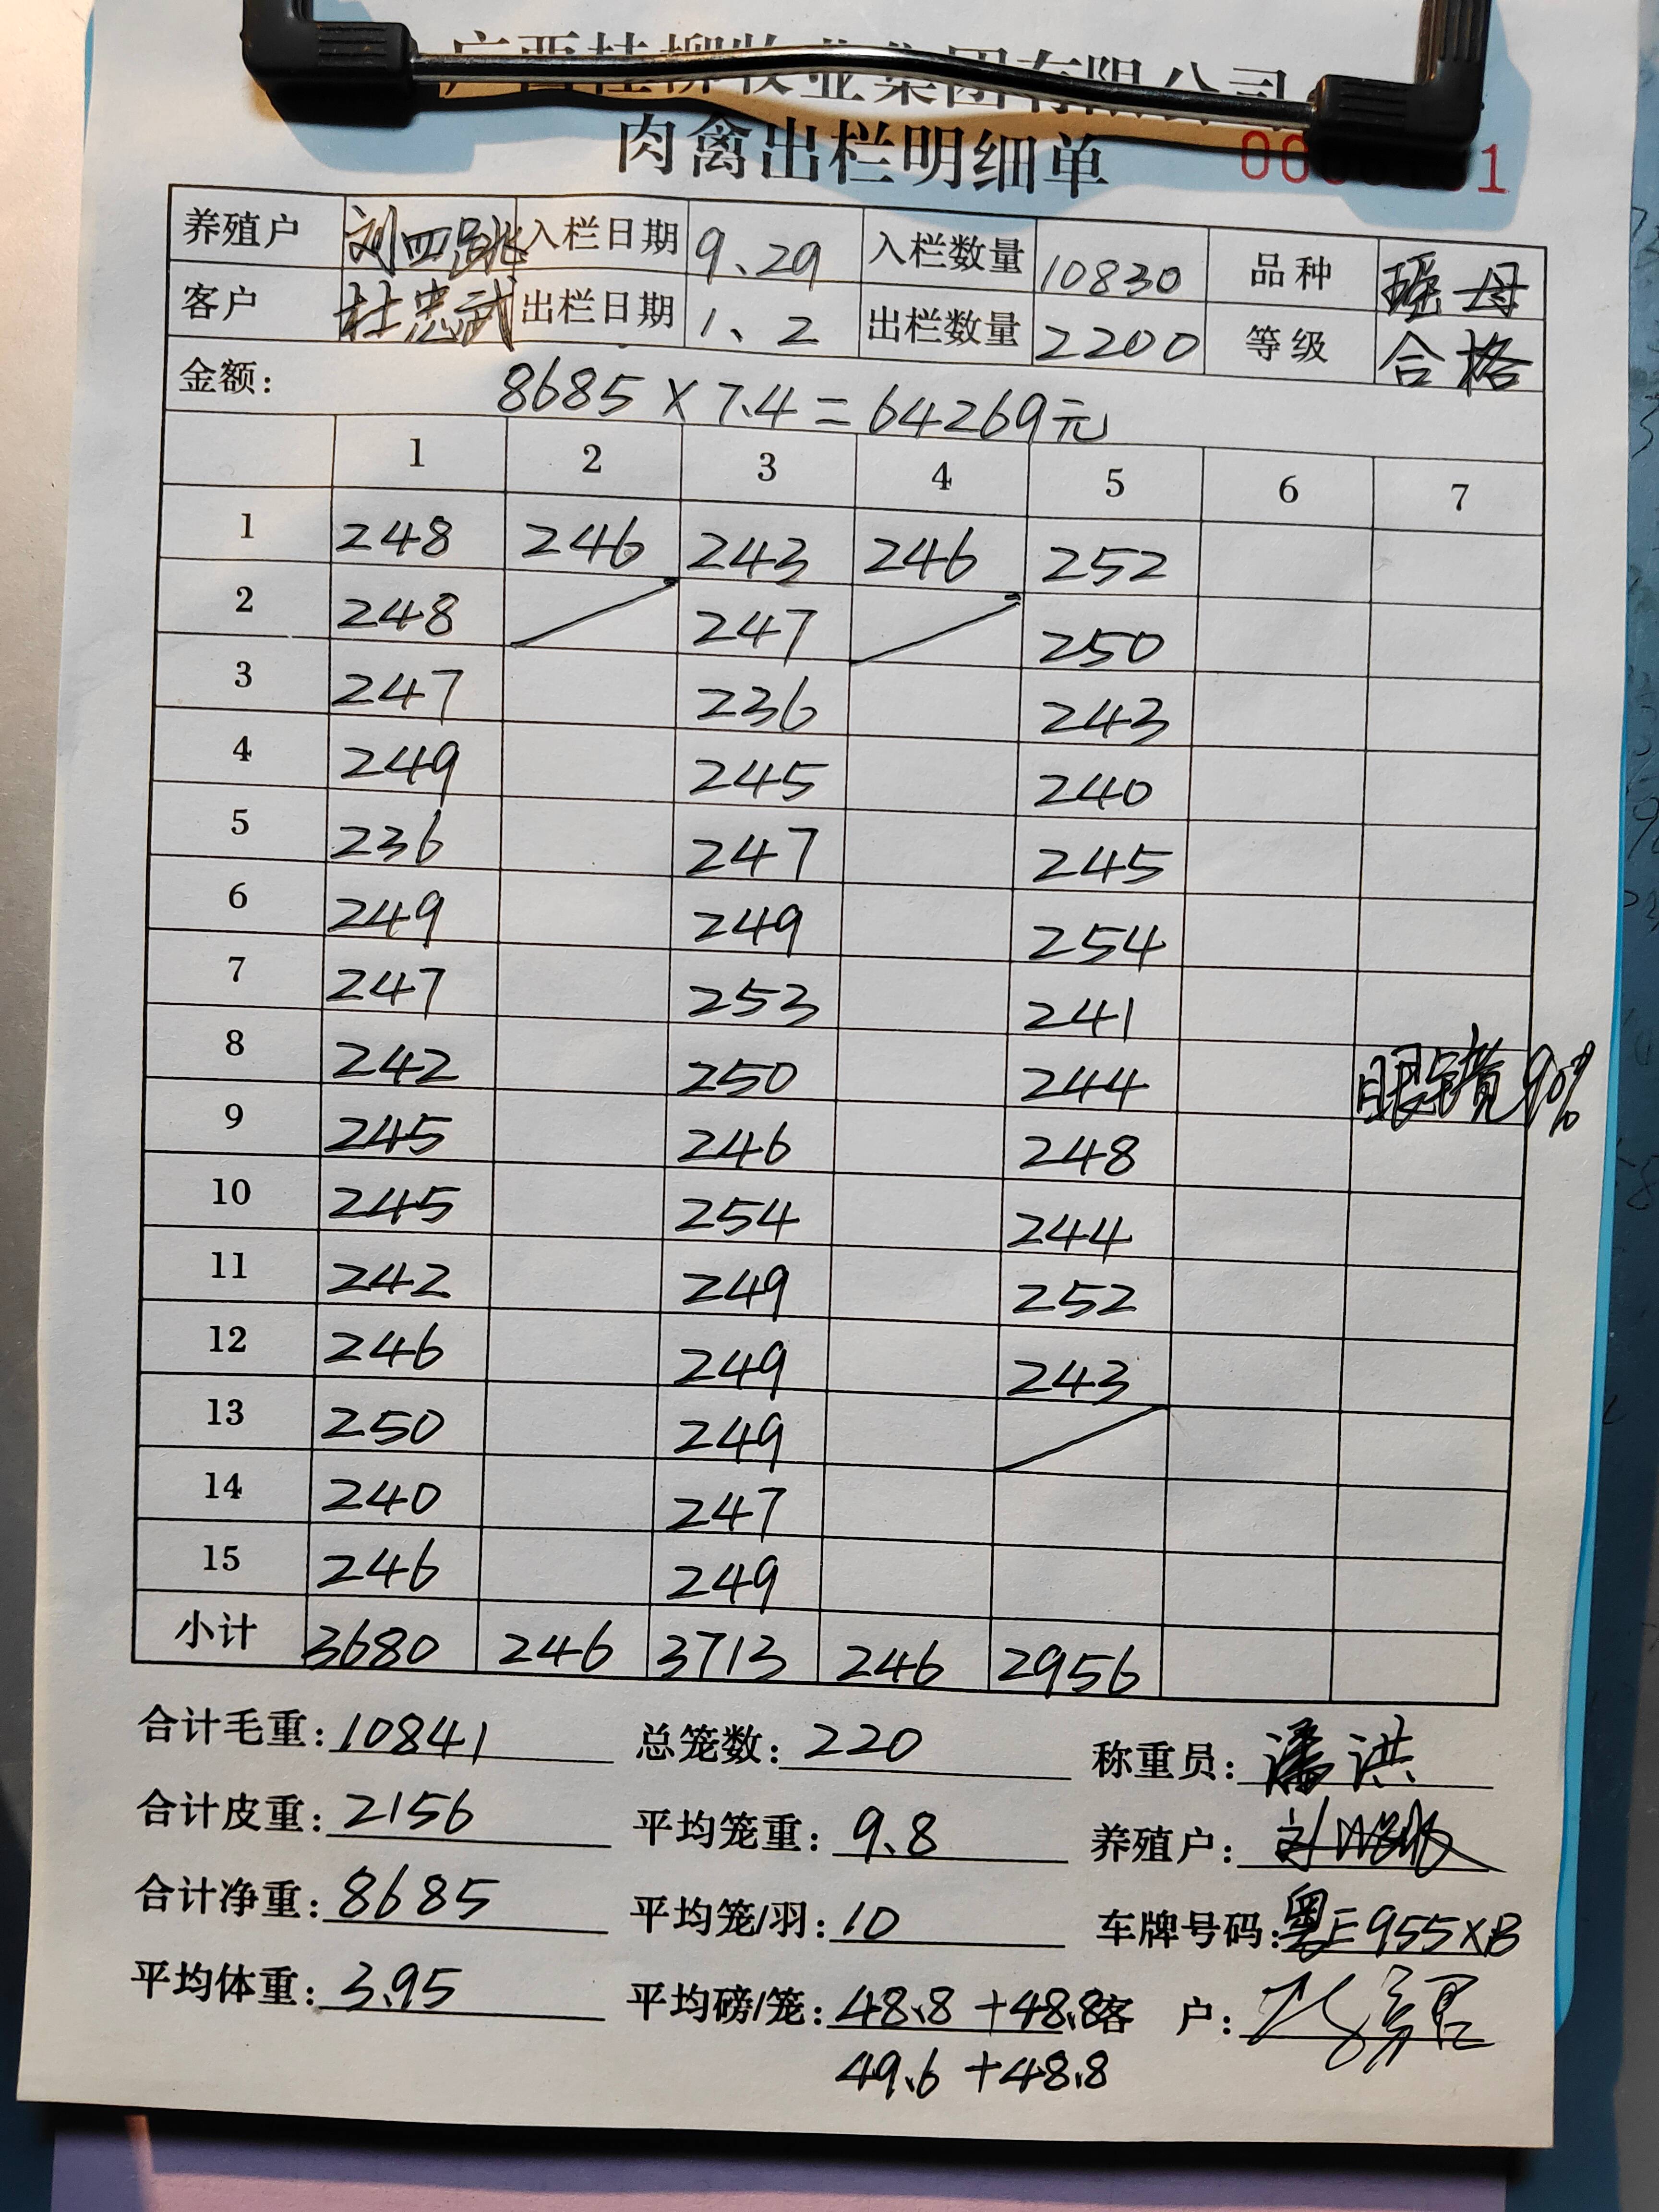 广西桂柳牧业集团有限公司
肉禽出栏明细单
养殖户 刘四跳 入栏日期 9.29 入栏数量 10830 品种 瑶母
客户 杜忠武 出栏日期 1、2 出栏数量 2200 等级 合格
金额: 8685×7.4=64269元
1 2 3 4 5 6 7
1 248 246 243 246 252
2 248 247 250
3 247 236 243
4 249 245 240
5 236 247 245
6 249 249 254
7 247 253 241
8 242 250 244 眼镜90%
9 245 246 248
10 245 254 244
11 242 249 252
12 246 249 243
13 250 249
14 240 247
15 246 249
小计 3680 246 3713 246 2956
合计毛重:10841 总笼数:220 称重员:潘洪
合计皮重:2156 平均笼重:9.8 养殖户:
合计净重:8685 平均笼/羽:10 车牌号码:粤E955XB
平均体重:3.95 平均磅/笼:48.8+48.8 客 户:
49.6+48.8